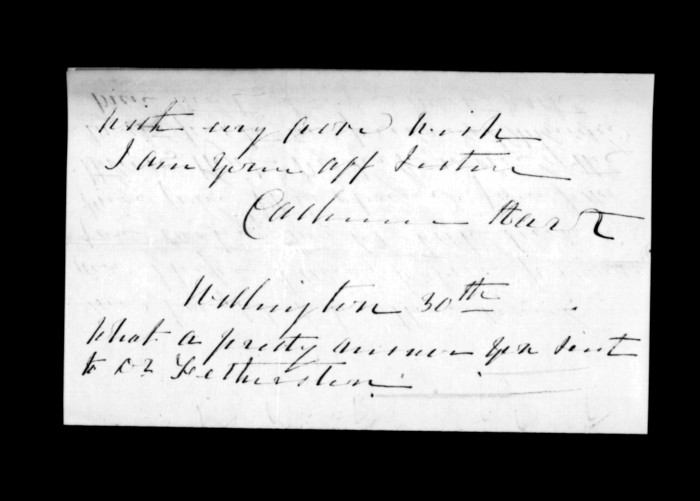 With my love wish
I am your aff Sister
Catherine Hart
Wellington 30th
What a pretty answer you sent
to Dr Fetherston